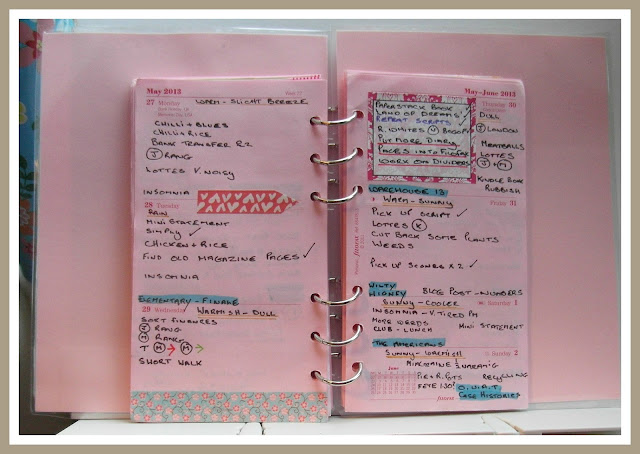 May 2013
27 Monday
WARM - SLIGHT BREEZE
CHILLI + BLUES
CHILLI + RICE
BANK TRANSFER R2
J RANG
LOTTES V. NOISY
INSOMNIA
28 Tuesday
RAIN
MINI STATEMENT
SIMPLY ✓
CHICKEN + RICE
FIND OLD MAGAZINE PAGES ✓
INSOMNIA
ELEMENTARY - FINALE
29 Wednesday WARMISH - DULL
SORT FINANCES
J RANG
M RANG
T M → M →
SHORT WALK
May–June 2013
Thursday 30
PAPERSTACK BOOK
LAND OF DREAMS ✓
REPEAT SCRIPTS ✓
PUT MORE DIARY
PAGES INTO FILOFAX
WORK ON DIVIDERS
DULL
J LONDON
MEATBALLS
LOTTES
J + M
KINDLE BOOK
RUBBISH
WAREHOUSE 13
WARM - SUNNY
Friday 31
PICK UP SCRIPT ✓
LOTTES K
CUT BACK SOME PLANTS
WEEDS
PICK UP SCONES x 2 ✓
BLOG POST - NUMBERS
SUNNY - COOLER
Saturday 1
INSOMNIA - V. TIRED PM
MORE WEEDS
CLUB - LUNCH
MINI STATEMENT
THE AMERICANS
SUNNY - WARMISH
Sunday 2
June
RECYCLING
FETE 1.30!
CASE HISTORIES
filofax